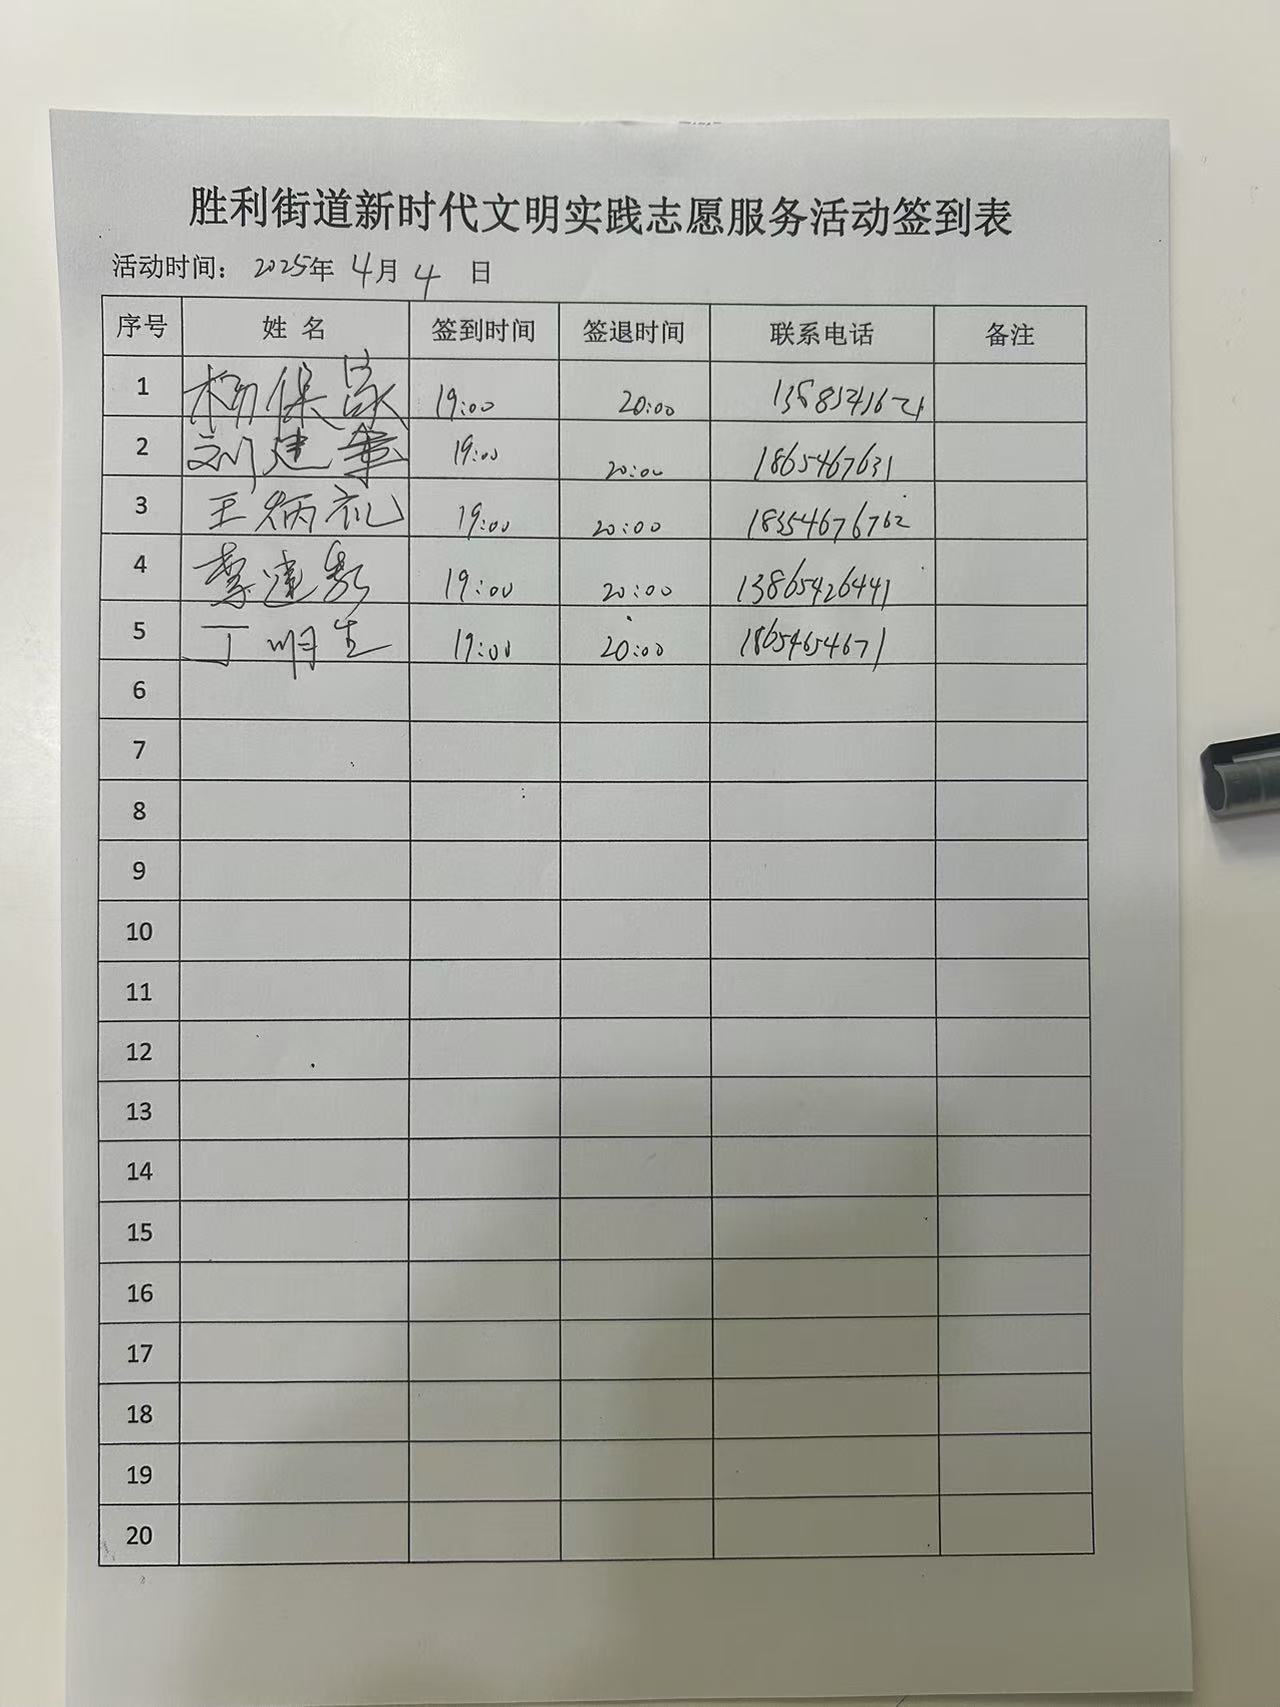 胜利街道新时代文明实践志愿服务活动签到表
活动时间: 2025年 4月 4 日
序号 姓 名 签到时间 签退时间 联系电话 备注
1 杨保 19:00 20:00
2 刘建军 19:00 20:00 1865467631
3 王炳礼 19:00 20:00 18354676762
4 建 19:00 20:00 13865426441
5 丁明生 19:00 20:00 18654654671
6
7
8
9
10
11
12
13
14
15
16
17
18
19
20